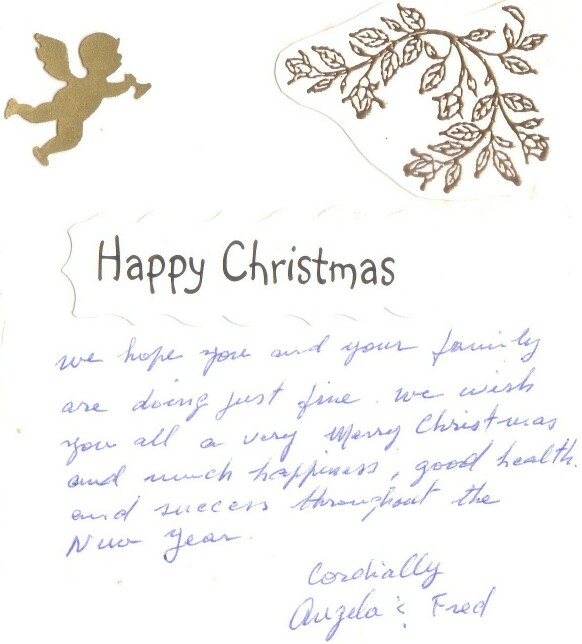 Happy Christmas
we hope you and your family
are doing just fine. we wish
you all a very Merry Christmas
and much happiness, good health.
and success throughout the
New Year.
Cordially
Angela & Fred